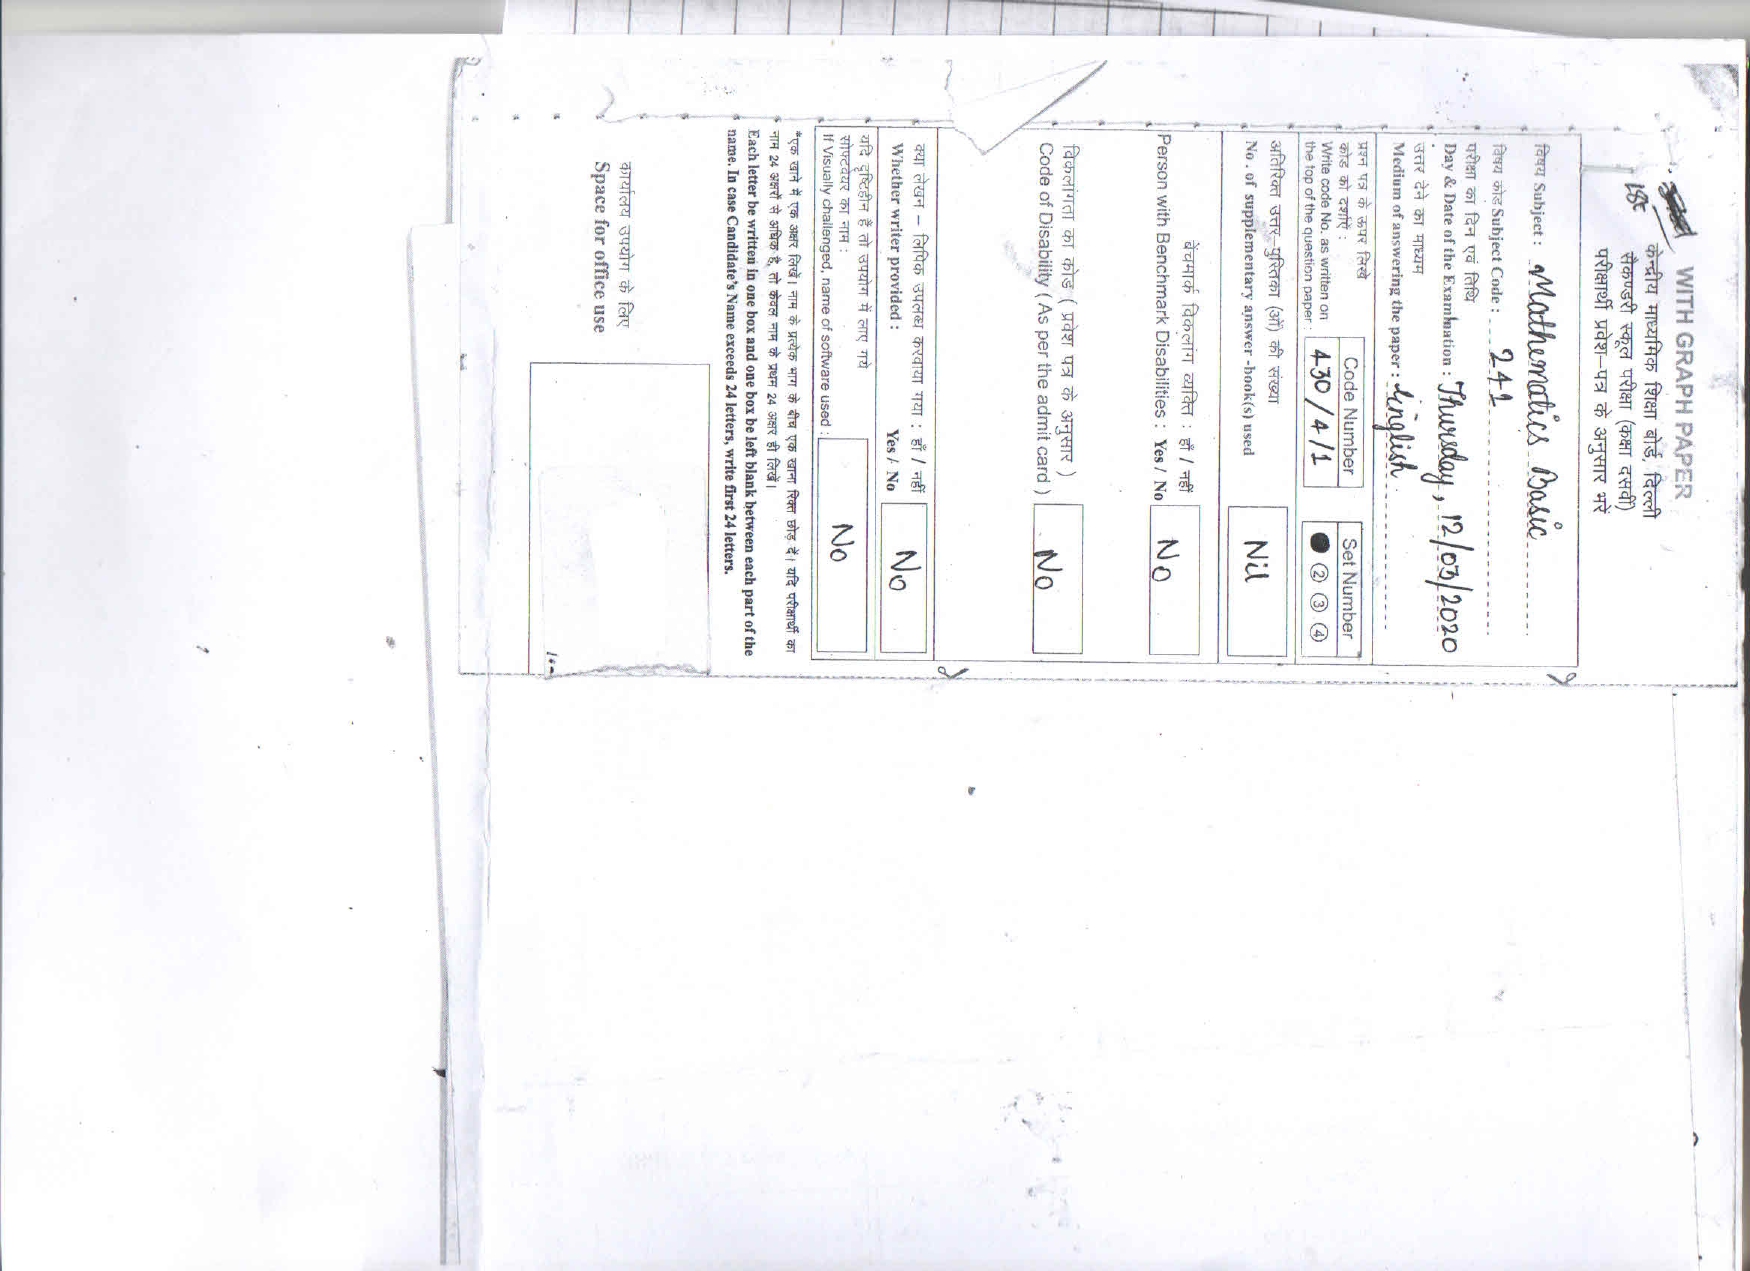 WITH GRAPH PAPER
केन्द्रीय माध्यमिक शिक्षा बोर्ड, दिल्ली
सैकण्डरी स्कूल परीक्षा (कक्षा दसवीं)
परीक्षार्थी प्रवेश–पत्र के अनुसार भरें
विषय Subject : Mathematics Basic
विषय कोड Subject Code : 241
परीक्षा का दिन एवं तिथि
Day & Date of the Examination : Thursday, 12/03/2020
उत्तर देने का माध्यम
Medium of answering the paper : English
प्रश्न पत्र के ऊपर लिखे
कोड को दर्शाए :
Write code No. as written on
the top of the question paper :
Code Number
430/4/1
Set Number
② ③ ④
अतिरिक्त उत्तर–पुस्तिका (ओं) की संख्या
No. of supplementary answer -book(s) used
Nil
बेंचमार्क विकलांग व्यक्ति : हाँ / नहीं
Person with Benchmark Disabilities : Yes / No
No
विकलांगता का कोड ( प्रवेश पत्र के अनुसार )
Code of Disability ( As per the admit card )
No
क्या लेखन – लिपिक उपलब्ध करवाया गया : हाँ / नहीं
Whether writer provided : Yes / No
No
यदि दृष्टिहीन हैं तो उपयोग में लाए गये
सोफ्टवेयर का नाम :
If Visually challenged, name of software used :
No
*एक खाने में एक अक्षर लिखें। नाम के प्रत्येक भाग के बीच एक खाना रिक्त छोड़ दें। यदि परीक्षार्थी का
नाम 24 अक्षरों से अधिक है, तो केवल नाम के प्रथम 24 अक्षर ही लिखें।
Each letter be written in one box and one box be left blank between each part of the
name. In case Candidate's Name exceeds 24 letters, write first 24 letters.
कार्यालय उपयोग के लिए
Space for office use